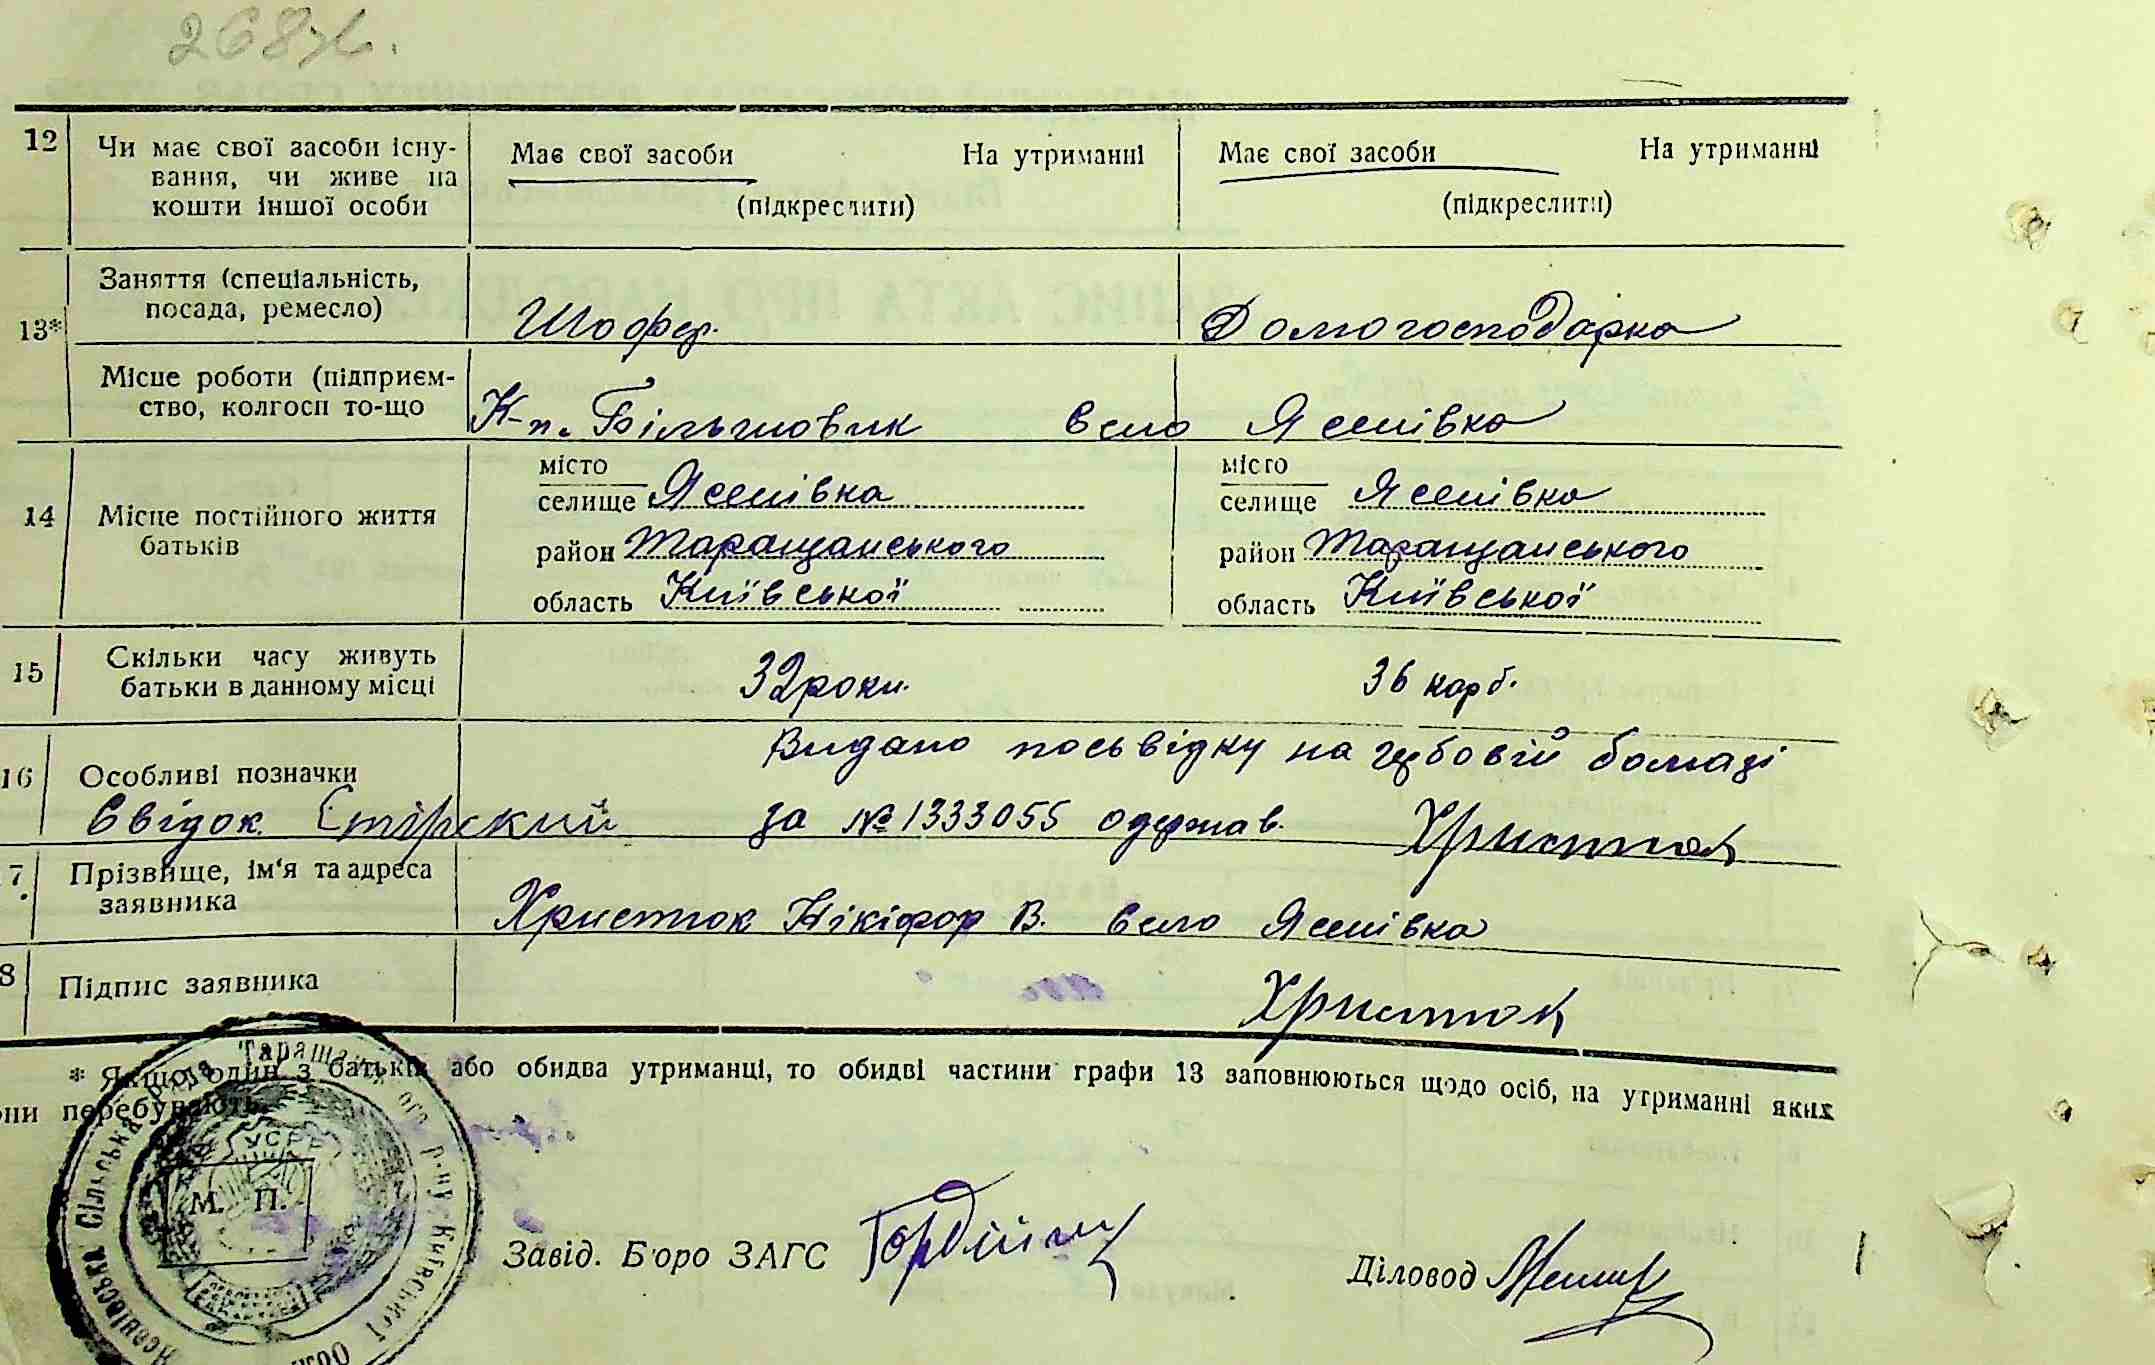 268
12 Чи має свої засоби існу-
вання, чи живе на
кошти іншої особи
Має свої засоби На утриманні
(підкреслити)
Має свої засоби На утриманні
(підкреслити)
13*
Заняття (спеціальність,
посада, ремесло)
Шофер.
Домогосподарка
Місце роботи (підприєм-
ство, колгосп то-що
К-п. Більшовик
село Ясенівка
14 Місце постійного життя
батьків
місто
селище Ясенівка
район Таращанського
область Київської
місто
селище Ясенівка
район Таращанського
область Київської
15 Скільки часу живуть
батьки в данному місці
32 роки.
36
16 Особливі позначки
Видано посьвідку на гербовій бомазі
Свідок
за № 1333055 одержав. Христюк
7. Прізвище, ім'я та адреса
заявника
Христюк Нікіфор В. село Ясенівка
8 Підпис заявника
Христюк
* Якщо один з батьків або обидва утриманці, то обидві частини графи 13 заповнюються щодо осіб, на утриманні яких
они перебувають.
Сільська Рада Таращанського р-ну Київської
УСРР
М. П.
Завід. Бюро ЗАГС
Діловод